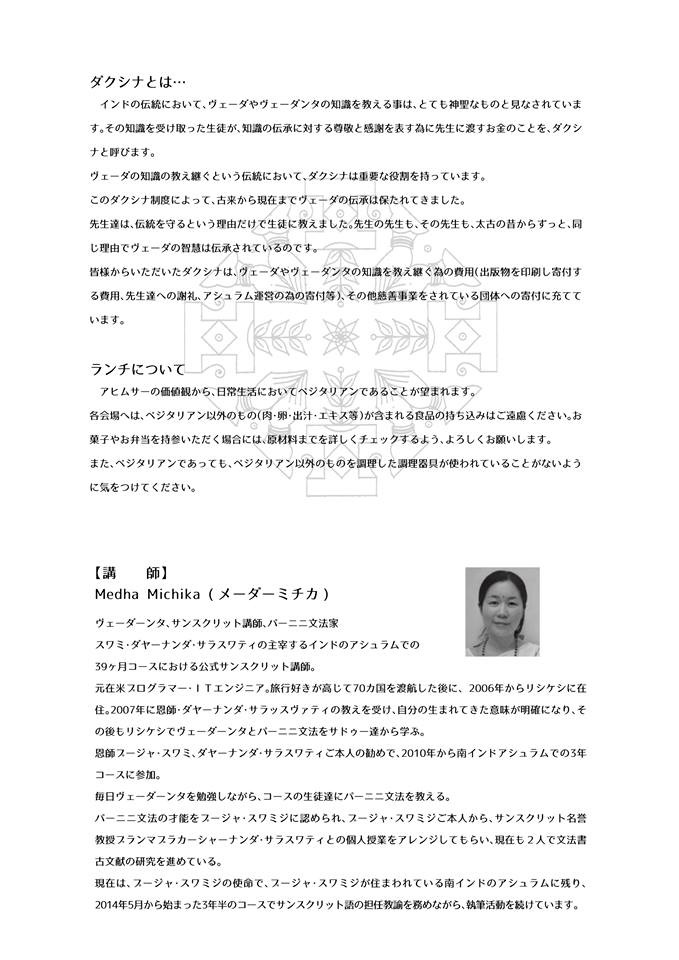 ダクシナとは…
インドの伝統において、ヴェーダやヴェーダンタの知識を教える事は、とても神聖なものと見なされていま
す。その知識を受け取った生徒が、知識の伝承に対する尊敬と感謝を表す為に先生に渡すお金のことを、ダクシ
ナと呼びます。
ヴェーダの知識の教え継ぐという伝統において、ダクシナは重要な役割を持っています。
このダクシナ制度によって、古来から現在までヴェーダの伝承は保たれてきました。
先生達は、伝統を守るという理由だけで生徒に教えました。先生の先生も、その先生も、太古の昔からずっと、同
じ理由でヴェーダの智慧は伝承されているのです。
皆様からいただいたダクシナは、ヴェーダやヴェーダンタの知識を教え継ぐ為の費用(出版物を印刷し寄付す
る費用、先生達への謝礼、アシュラム運営の為の寄付等)、その他慈善事業をされている団体への寄付に充てて
います。
ランチについて
アヒムサーの価値観から、日常生活においてベジタリアンであることが望まれます。
各会場へは、ベジタリアン以外のもの(肉・卵・出汁・エキス等)が含まれる食品の持ち込みはご遠慮ください。お
菓子やお弁当を持参いただく場合には、原材料までを詳しくチェックするよう、よろしくお願いします。
また、ベジタリアンであっても、ベジタリアン以外のものを調理した調理器具が使われていることがないよう
に気をつけてください。
【講　師】
Medha Michika (メーダーミチカ)
ヴェーダーンタ、サンスクリット講師、パーニニ文法家
スワミ・ダヤーナンダ・サラスワティの主宰するインドのアシュラムでの
39ヶ月コースにおける公式サンスクリット講師。
元在米プログラマー・ITエンジニア。旅行好きが高じて70カ国を渡航した後に、2006年からリシケシに在
住。2007年に恩師・ダヤーナンダ・サラッスヴァティの教えを受け、自分の生まれてきた意味が明確になり、そ
の後もリシケシでヴェーダーンタとパーニニ文法をサドゥー達から学ぶ。
恩師プージャ・スワミ、ダヤーナンダ・サラスワティご本人の勧めで、2010年から南インドアシュラムでの3年
コースに参加。
毎日ヴェーダーンタを勉強しながら、コースの生徒達にパーニニ文法を教える。
パーニニ文法の才能をプージャ・スワミジに認められ、プージャ・スワミジご本人から、サンスクリット名誉
教授ブランマプラカーシャーナンダ・サラスワティとの個人授業をアレンジしてもらい、現在も2人で文法書
古文献の研究を進めている。
現在は、プージャ・スワミジの使命で、プージャ・スワミジが住まわれている南インドのアシュラムに残り、
2014年5月から始まった3年半のコースでサンスクリット語の担任教諭を務めながら、執筆活動を続けています。